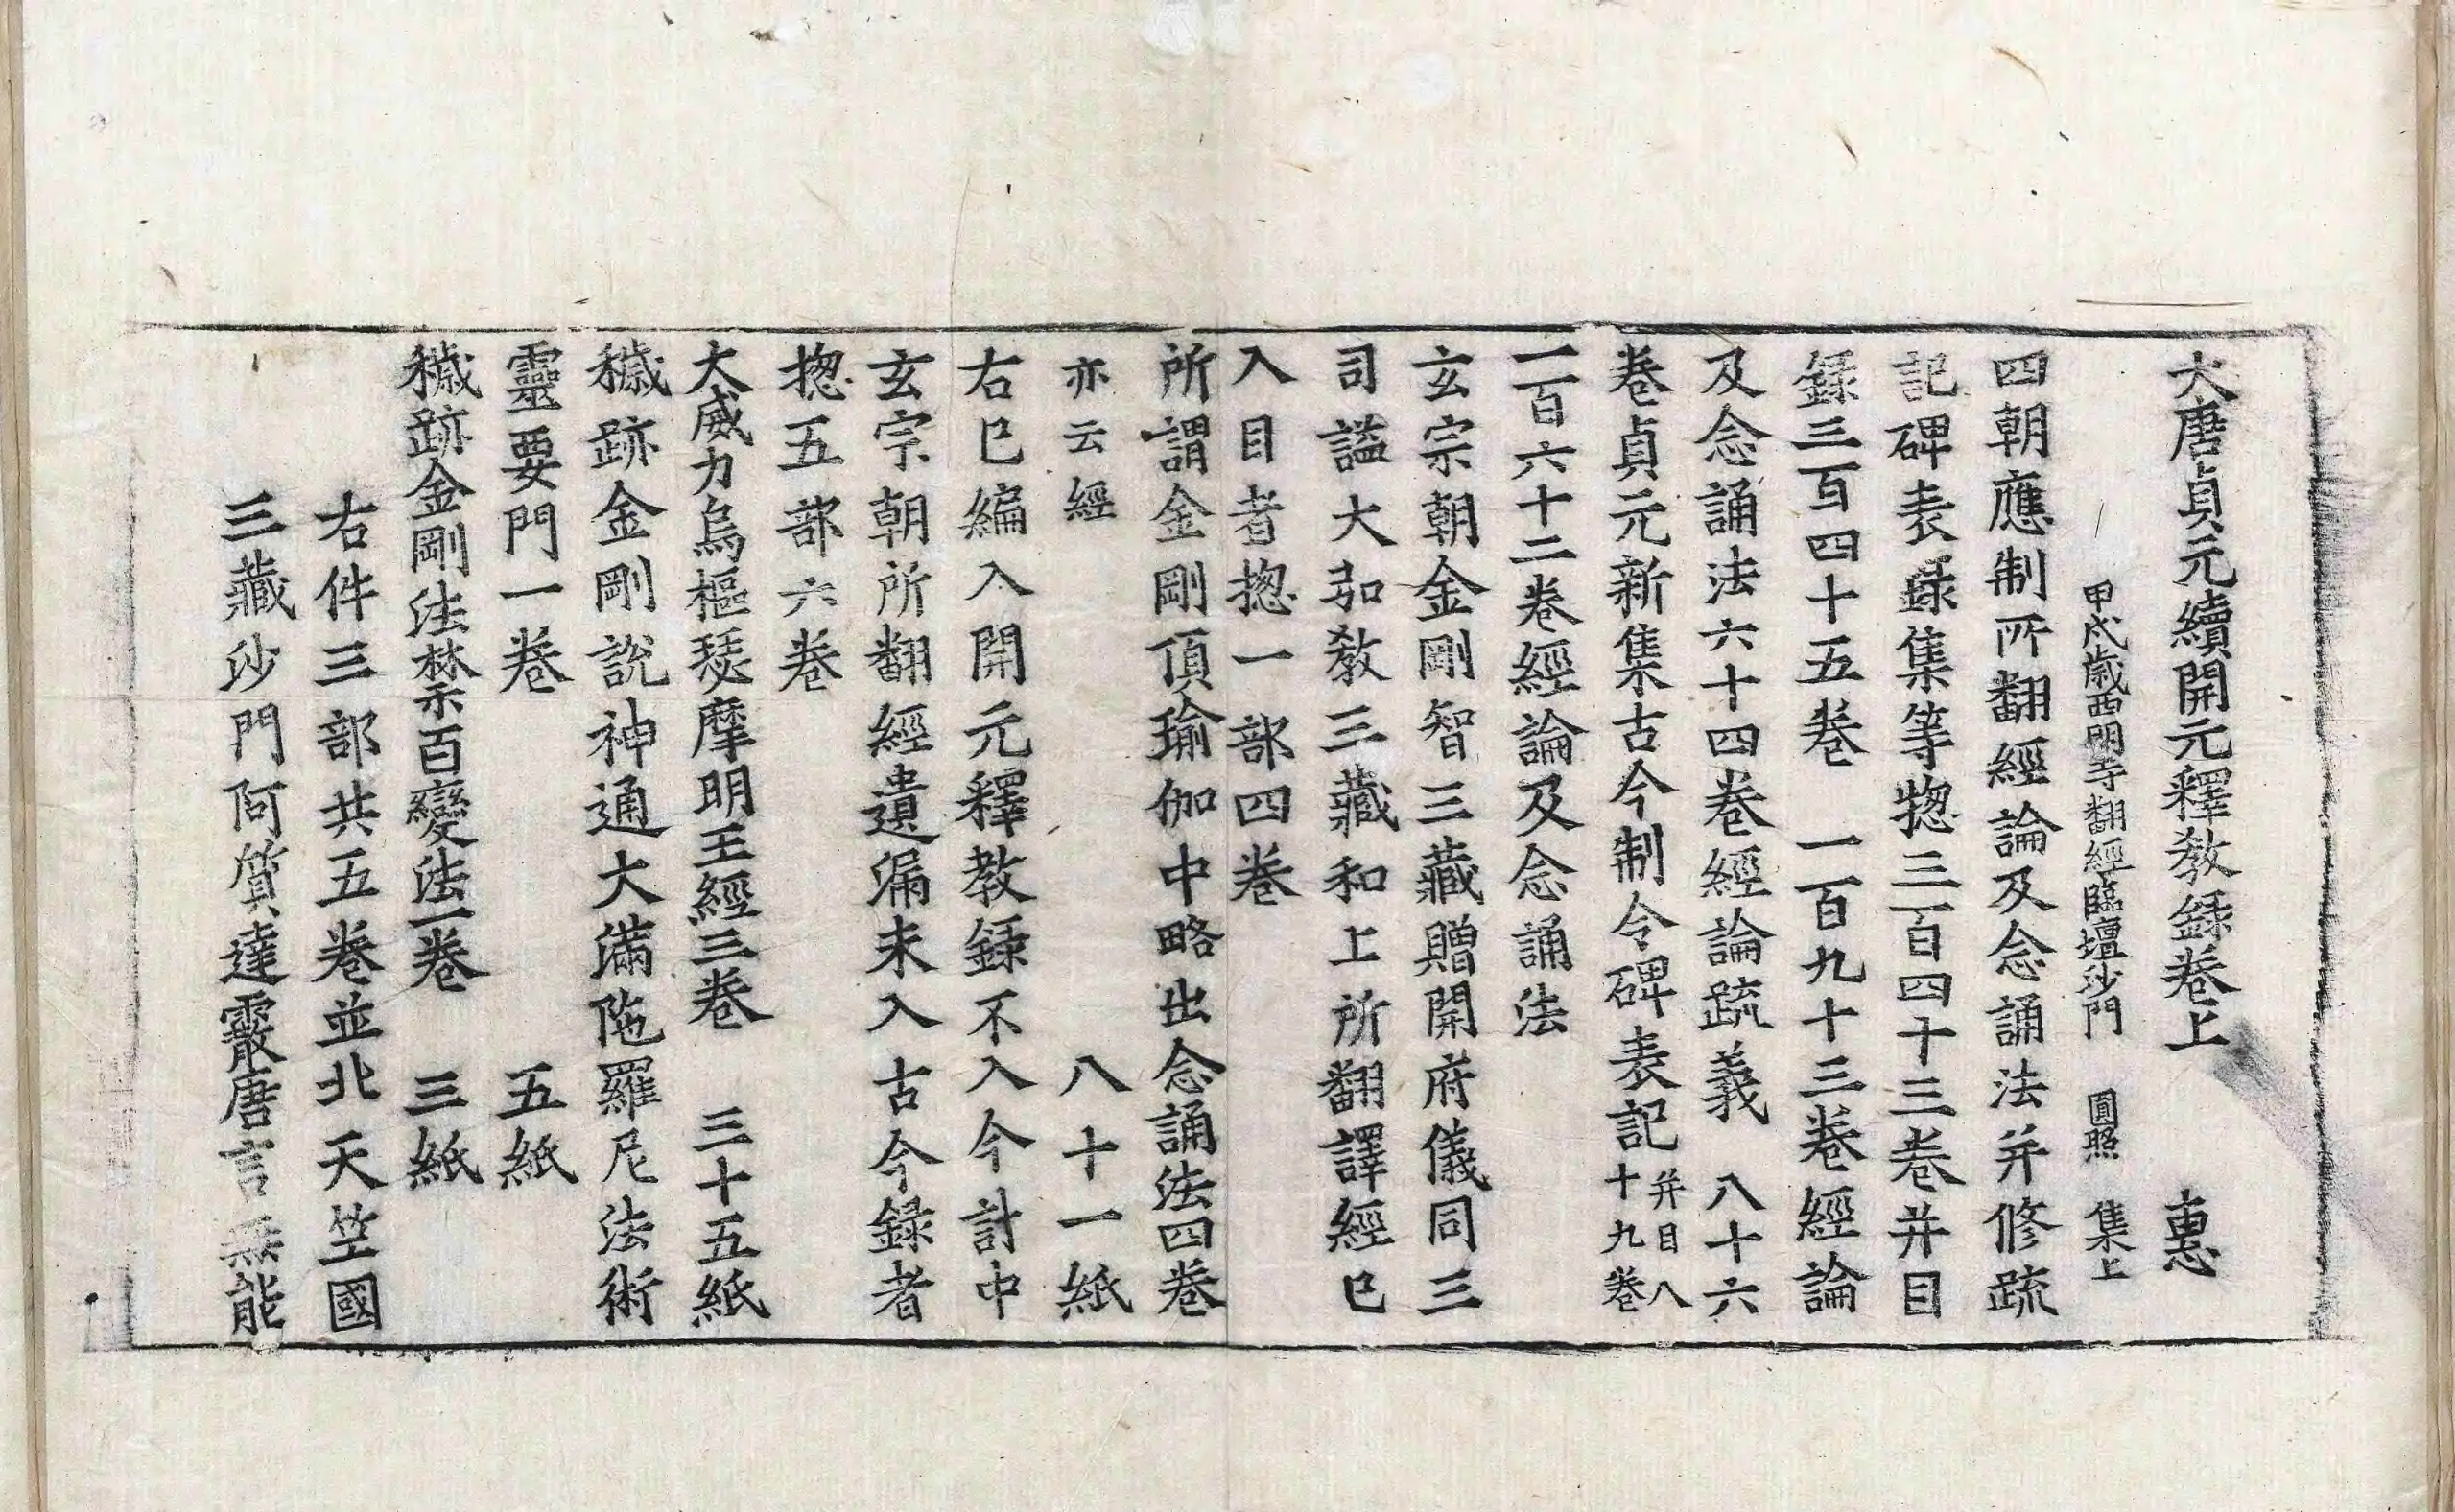 大唐貞元續開元釋教録卷上　惠
甲戌歲西明寺翻經臨壇沙門　圓照　集上
四朝應制所翻經論及念誦法并修疏
記碑表録集等揔三百四十三卷并目
録三百四十五卷　一百九十三卷經論
及念誦法六十四卷經論疏義　八十六
卷貞元新集古今制令碑表記并目八十九卷
一百六十二卷經論及念誦法
玄宗朝金剛智三藏贈開府儀同三
司謚大弘教三藏和上所翻譯經已
入目者揔一部四卷
所謂金剛頂瑜伽中略出念誦法四卷
亦云經　八十一紙
右已編入開元釋教録不入今計中
玄宗朝所翻經遺漏未入古今録者
揔五部六卷
大威力烏樞瑟摩明王經三卷　三十五紙
穢跡金剛説神通大滿陁羅尼法術
靈要門一卷　五紙
穢跡金剛法禁百變法一卷　三紙
右件三部共五卷並北天竺國
三藏沙門阿質達霰唐言無能